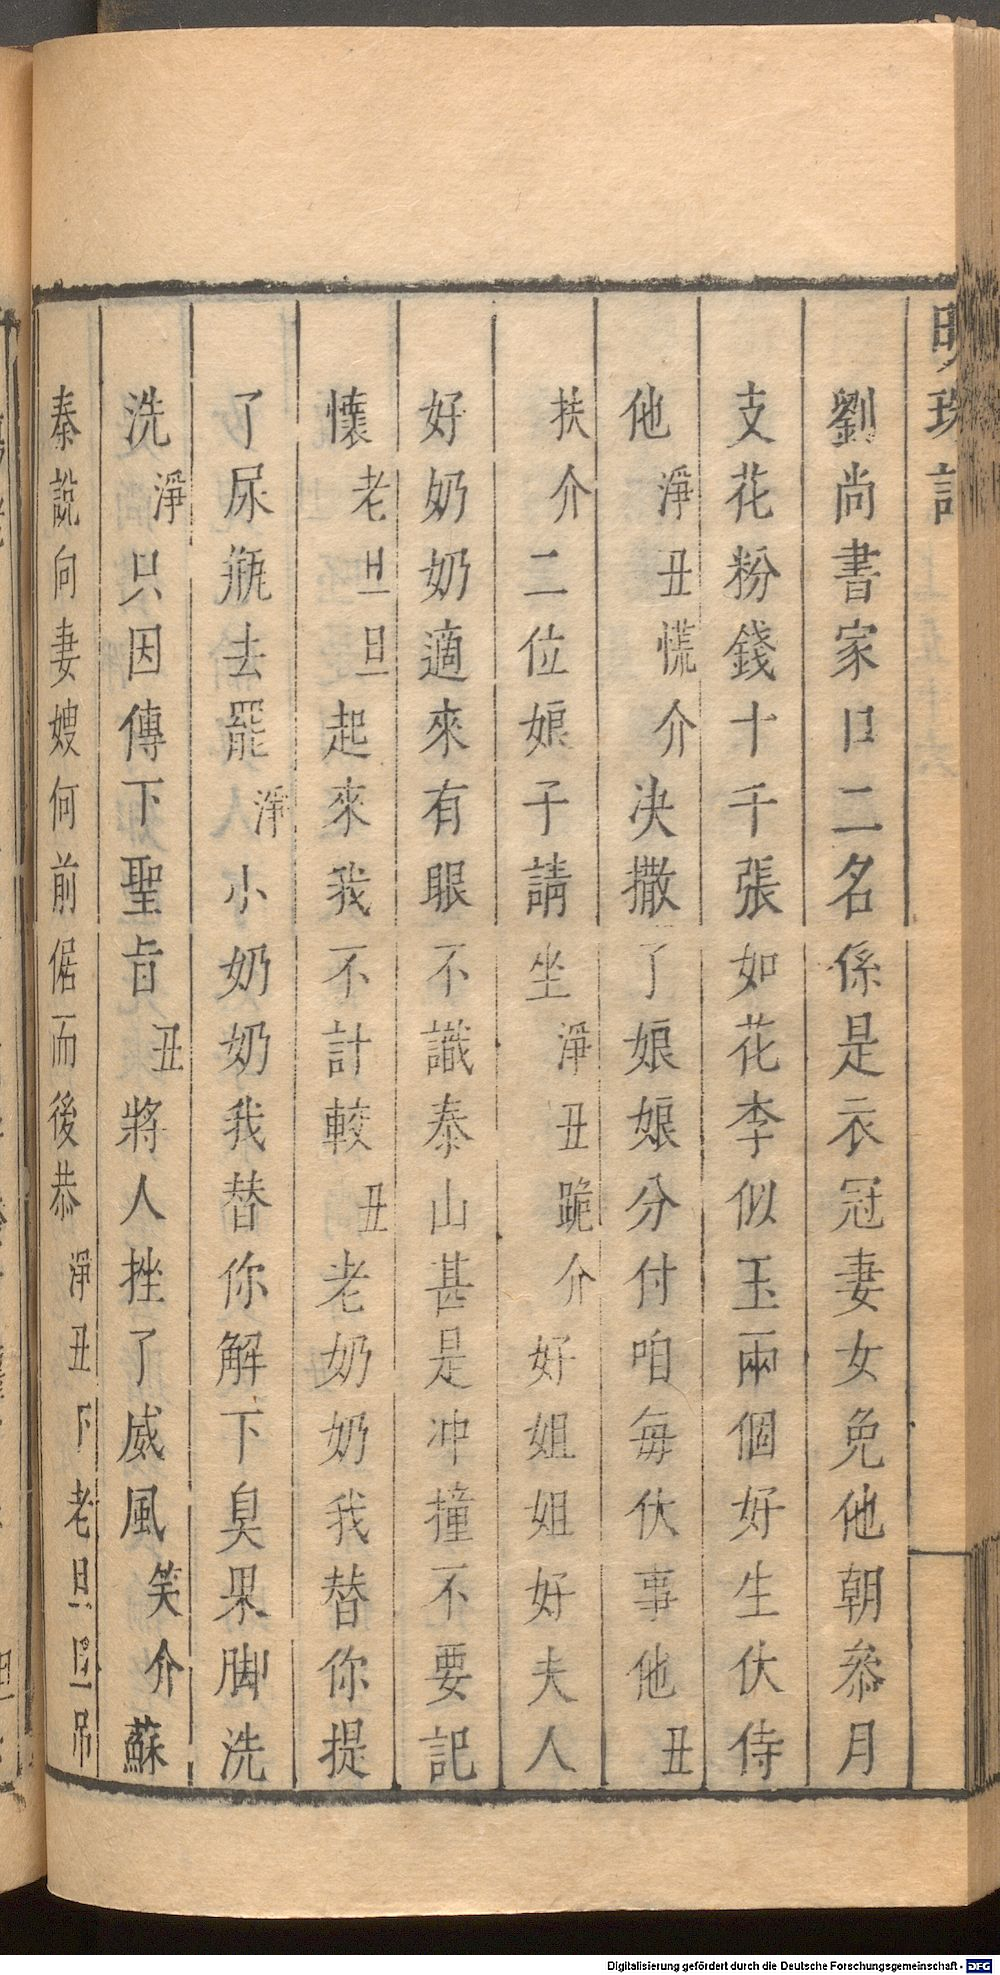 明珠記
劉尚書家口二名係是衣冠妻女免他朝叅月
支花粉錢十千張如花李似玉兩個好生伏侍
他淨丑慌介决撒了娘娘分付咱每伏事他丑
扶介二位娘子請坐淨丑跪介好姐姐好夫人
好奶奶適來有眼不識泰山甚是冲撞不要記
懷老旦旦起來我不計較丑老奶奶我替你提
了尿瓶去罷淨小奶奶我替你解下臭裹脚洗
洗淨只因傳下聖旨丑將人挫了威風笑介蘇
秦說向妻嫂何前倨而後恭淨丑下老旦旦吊
Digitalisierung gefördert durch die Deutsche Forschungsgemeinschaft - DFG